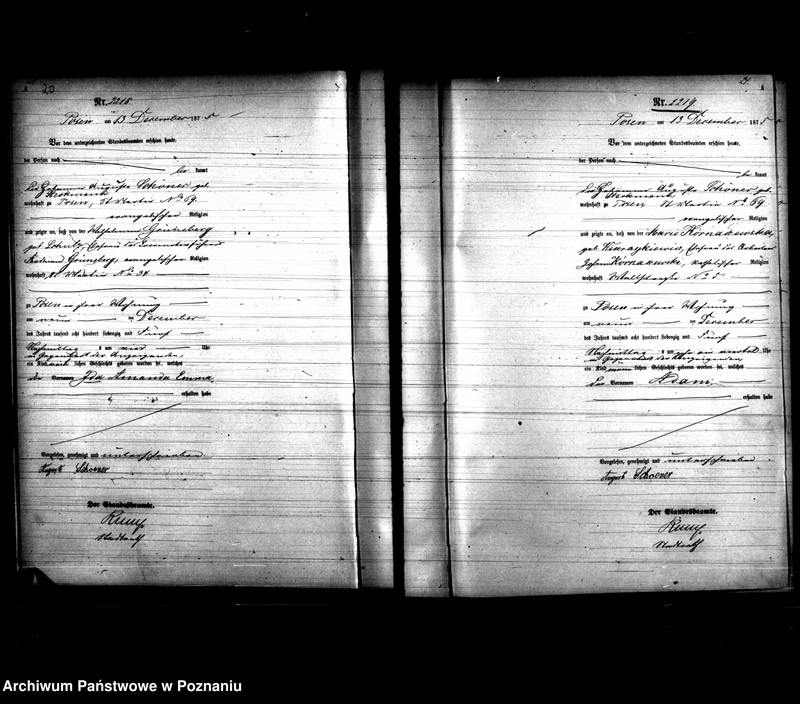 20
Nr. 2218
Posen am 13 December 1875
Vor dem unterzeichneten Standesbeamten erschien heute,
der Person nach
be kannt
die Hebamme Auguste Schoener geb
wohnhaft zu Posen, St Martin No 69.
evangelischer Religion
und zeigte an, daß von der
geb Schulz, Ehefrau des
evangelischer Religion
wohnhaft, St. Martin No 34
zu Posen in ihrer Wohnung
am neun ten December
des Jahres tausend acht hundert siebenzig und fünf
Nachmittag s um vier Uhr
in Gegenwart der Anzeigenden,
ein Kind weib lichen Geschlechts geboren worden sei, welches
die Vornamen Ida Amanda Emma
erhalten habe
Vorgelesen, genehmigt und unterschrieben
Auguste Schoener
Der Standesbeamte.
Stadtrath
21
Nr. 2219.
Posen am 13 December 1875
Vor dem unterzeichneten Standesbeamten erschien heute,
der Person nach
be kannt
die Hebamme Auguste Schoener geb
wohnhaft zu Posen St Martin No 69.
evangelischer Religion
und zeigte an, daß von der Marie Kornakewska
geb
Johann Kornakewski, katholischer Religion
wohnhaft Wallstraße No
zu Posen in ihrer Wohnung
am neun ten December
des Jahres tausend acht hundert siebenzig und fünf
Nachmittag s um Uhr
in Gegenwart der Anzeigenden,
ein Kind männ lichen Geschlechts geboren worden sei, welches
den Vornamen Adam
erhalten habe
Vorgelesen, genehmigt und unterschrieben
August Schoener
Der Standesbeamte.
Stadtrath
Archiwum Państwowe w Poznaniu